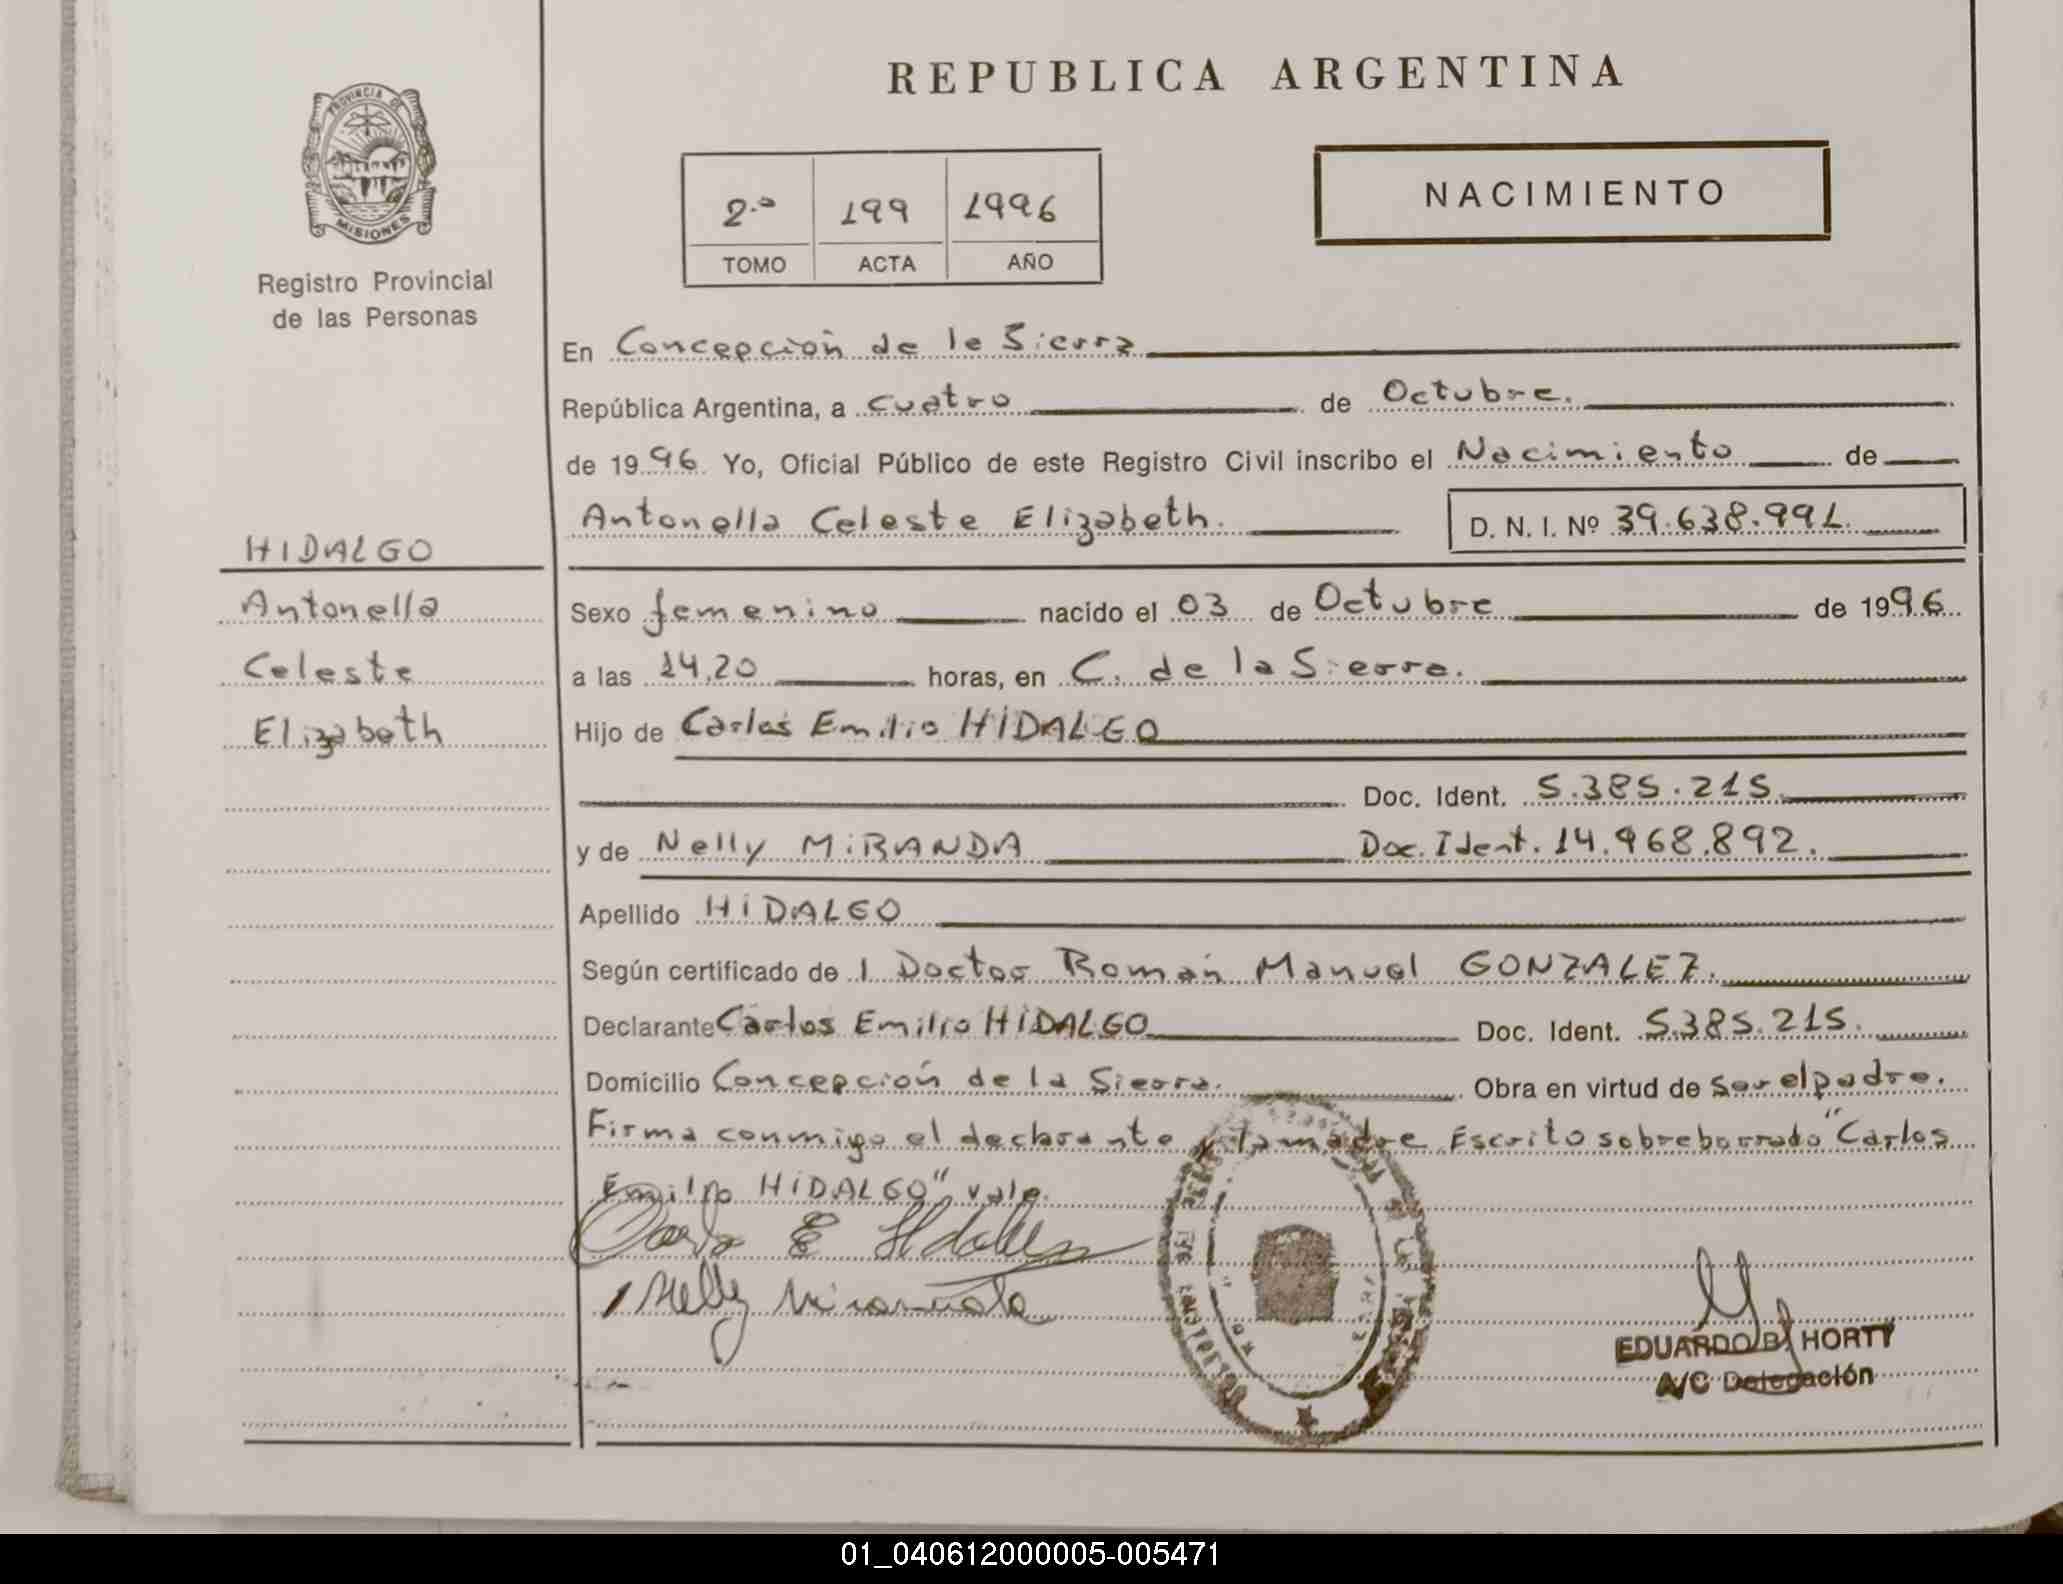 REPUBLICA ARGENTINA
PROVINCIA DE
MISIONES
Registro Provincial
de las Personas
2.º 199 1996
TOMO ACTA AÑO
NACIMIENTO
En Concepción de la Sierra
República Argentina, a cuatro de Octubre.
de 1996. Yo, Oficial Público de este Registro Civil inscribo el Nacimiento de
Antonella Celeste Elizabeth. D. N. I. Nº 39.638.991.
HIDALGO
Antonella
Celeste
Elizabeth
Sexo femenino nacido el 03 de Octubre de 1996.
a las 14,20 horas, en C. de la Sierra.
Hijo de Carlos Emilio HIDALGO
Doc. Ident. 5.385.215.
y de Nelly MIRANDA Doc. Ident. 14.968.892.
Apellido HIDALGO
Según certificado de l Doctor Román Manuel GONZALEZ.
Declarante Carlos Emilio HIDALGO Doc. Ident. 5.385.215.
Domicilio Concepción de la Sierra. Obra en virtud de Ser el padre.
Firma conmigo el declarante y la madre Escrito sobreborrado "Carlos
Emilio HIDALGO" vale.
Carlos E Hidalgo
Nelly Miranda
EDUARDO B. HORTY
A/C Delegación
01_040612000005-005471